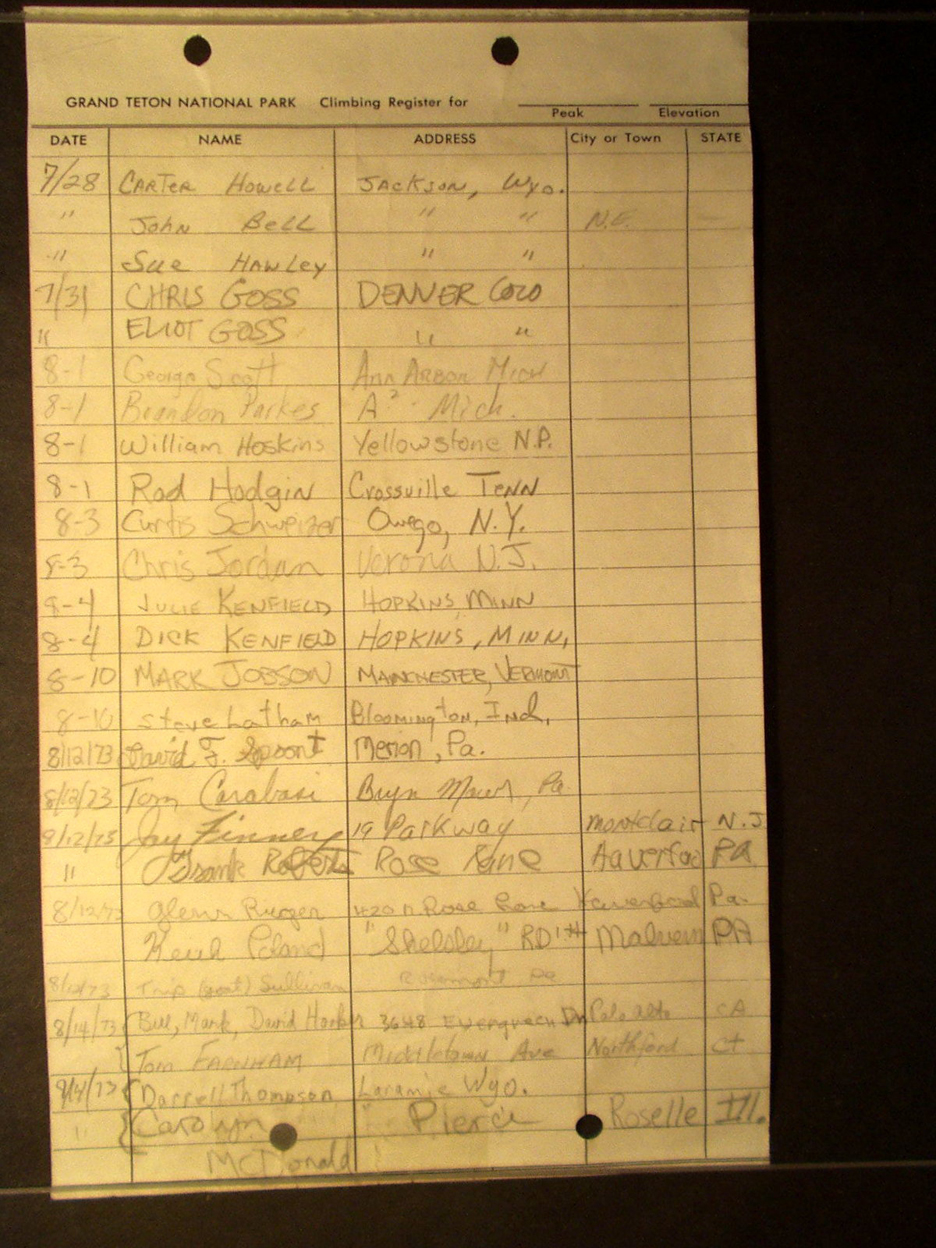 GRAND TETON NATIONAL PARK Climbing Register for
Peak Elevation
DATE NAME ADDRESS City or Town STATE
7/28 CARTER HOWELL JACKSON, Wyo.
" John BELL " " N.E.
" Sue HAWLEY " "
7/31 CHRIS GOSS DENVER COLO
" ELIOT GOSS " "
8-1 George Scott Ann Arbor Mich
8-1 Brandon Parkes A² Mich.
8-1 William Hoskins Yellowstone N.P.
8-1 Rod Hodgin Crossville TENN
8-3 Curtis Schweizer Owego, N.Y.
8-3 Chris Jordan Verona N.J.
8-4 JULIE KENFIELD HOPKINS, MINN
8-4 DICK KENFIELD HOPKINS, MINN.
8-10 MARK JOBSON MANCHESTER, VERMONT
8-10 Steve Latham Bloomington, Ind.
8/12/73 David F. Spoont Merion, Pa.
8/12/73 Tom Carabasi Bryn Mawr, Pa.
8/12/73 Jay Finney 19 Parkway Montclair N.J
" Frank Roberts Rose Lane Haverford PA
8/12/73 Glenn Ruger 1420 N. Rose Lane Haverford Pa.
"Shelsley" RD Malvern PA
8/12/73 Trip (goat) Sullivan Rosemont Pa
8/14/73 Bill, Mark, David 3648 Evergreen Dr Palo Alto CA
Tom FARNHAM Middletown Ave Northford Ct
8/14/73 Darrell Thompson Laramie Wyo.
" Carolyn Pierce Roselle Ill.
McDonald